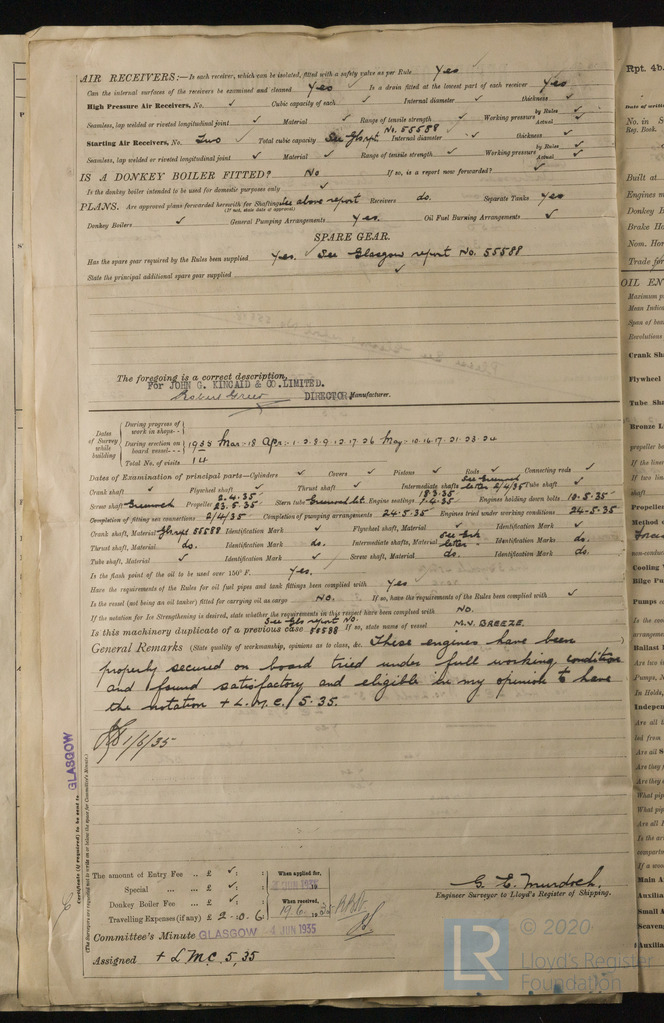 AIR RECEIVERS:—Is each receiver, which can be isolated, fitted with a safety valve as per Rule Yes ✓
Can the internal surfaces of the receivers be examined and cleaned Yes Is a drain fitted at the lowest part of each receiver Yes
High Pressure Air Receivers, No. ✓ Cubic capacity of each ✓ Internal diameter ✓ thickness ✓
Seamless, lap welded or riveted longitudinal joint ✓ Material ✓ Range of tensile strength ✓ Working pressure by Rules ✓ Actual ✓
Starting Air Receivers, No. Two ✓ Total cubic capacity See Gls rpt. No. 55588 Internal diameter ✓ thickness ✓
Seamless, lap welded or riveted longitudinal joint ✓ Material ✓ Range of tensile strength ✓ Working pressure by Rules ✓ Actual ✓
IS A DONKEY BOILER FITTED? No If so, is a report now forwarded? ✓
Is the donkey boiler intended to be used for domestic purposes only ✓
PLANS. Are approved plans forwarded herewith for Shafting See above report Receivers do. Separate Tanks Yes
(If not, state date of approval)
Donkey Boilers ✓ General Pumping Arrangements Yes. Oil Fuel Burning Arrangements ✓
SPARE GEAR.
Has the spare gear required by the Rules been supplied Yes. See Glasgow report No. 55588
State the principal additional spare gear supplied ✓
The foregoing is a correct description,
For JOHN G. KINCAID & CO. LIMITED.
Robert Greer DIRECTOR. Manufacturer.
Dates of Survey while building
During progress of work in shops - - ✓
During erection on board vessel - - - 1935 Mar-18 Apr:-1-2-8-9-12-17-26 May:-10-16-17-21-23-24
Total No. of visits 14
Dates of Examination of principal parts—Cylinders ✓ Covers ✓ Pistons ✓ Rods ✓ Connecting rods ✓
Crank shaft ✓ Flywheel shaft ✓ Thrust shaft ✓ Intermediate shafts See Greenock letter 2/4/35 Tube shaft ✓
Screw shaft Greenock Propeller 2.4.35 23.5.35 Stern tube Greenock Let. Engine seatings 18.3.35 1.4.35 Engines holding down bolts 10.5.35
Completion of fitting sea connections 2/4/35 Completion of pumping arrangements 24-5-35 Engines tried under working conditions 24-5-35
Crank shaft, Material Gls rpt 55588 Identification Mark ✓ Flywheel shaft, Material ✓ Identification Mark ✓
Thrust shaft, Material do. Identification Mark do. Intermediate shafts, Material See Grk letter Identification Marks do.
Tube shaft, Material ✓ Identification Mark ✓ Screw shaft, Material do. Identification Mark do.
Is the flash point of the oil to be used over 150° F. Yes.
Have the requirements of the Rules for oil fuel pipes and tank fittings been complied with Yes ✓
Is the vessel (not being an oil tanker) fitted for carrying oil as cargo No. If so, have the requirements of the Rules been complied with ✓
If the notation for Ice Strengthening is desired, state whether the requirements in this respect have been complied with No.
Is this machinery duplicate of a previous case See Gls report No. 55588 If so, state name of vessel M.V. BREEZE.
General Remarks (State quality of workmanship, opinions as to class, &c. These engines have been
properly secured on board tried under full working condition
and found satisfactory and eligible in my opinion to have
the notation + L.M.C. 5.35.
1/6/35
GLASGOW
Certificate (if required) to be sent to
(The Surveyors are requested not to write on or below the space for Committee's Minute.)
The amount of Entry Fee .. £ ✓ : :
Special ... ... £ ✓ : :
Donkey Boiler Fee ... £ ✓ : :
Travelling Expenses (if any) £ 2 . 0 . 6
When applied for,
JUN 1935
When received,
19.6.1935
G. E. Murdoch.
Engineer Surveyor to Lloyd's Register of Shipping.
Committee's Minute GLASGOW 4 JUN 1935
Assigned + LMC 5,35
LR © 2020
Lloyd's Register
Foundation
Rpt. 4b.
Date of writing
No. in
Reg. Book.
Built at
Engines
Donkey
Brake Ho
Nom. Hor
Trade for
OIL EN
Maximum p
Mean Indica
Span of bea
Revolutions
Crank Sha
Flywheel
Tube Sha
Bronze L
propeller bo
If the liner
If two lin
shaft
Propeller
Method o
non-conduct
Cooling
Bilge Pu
Pumps co
Is the cool
arrangemen
Ballast
Are two i
Pumps, N
In Holds,
Indepen
Are all t
led from
Are all S
Are they f
Are they d
What pip
What pip
Are all
Is the ar
compartm
If a wood
Main A
Auxilia
Small A
Scaveng
Auxilia